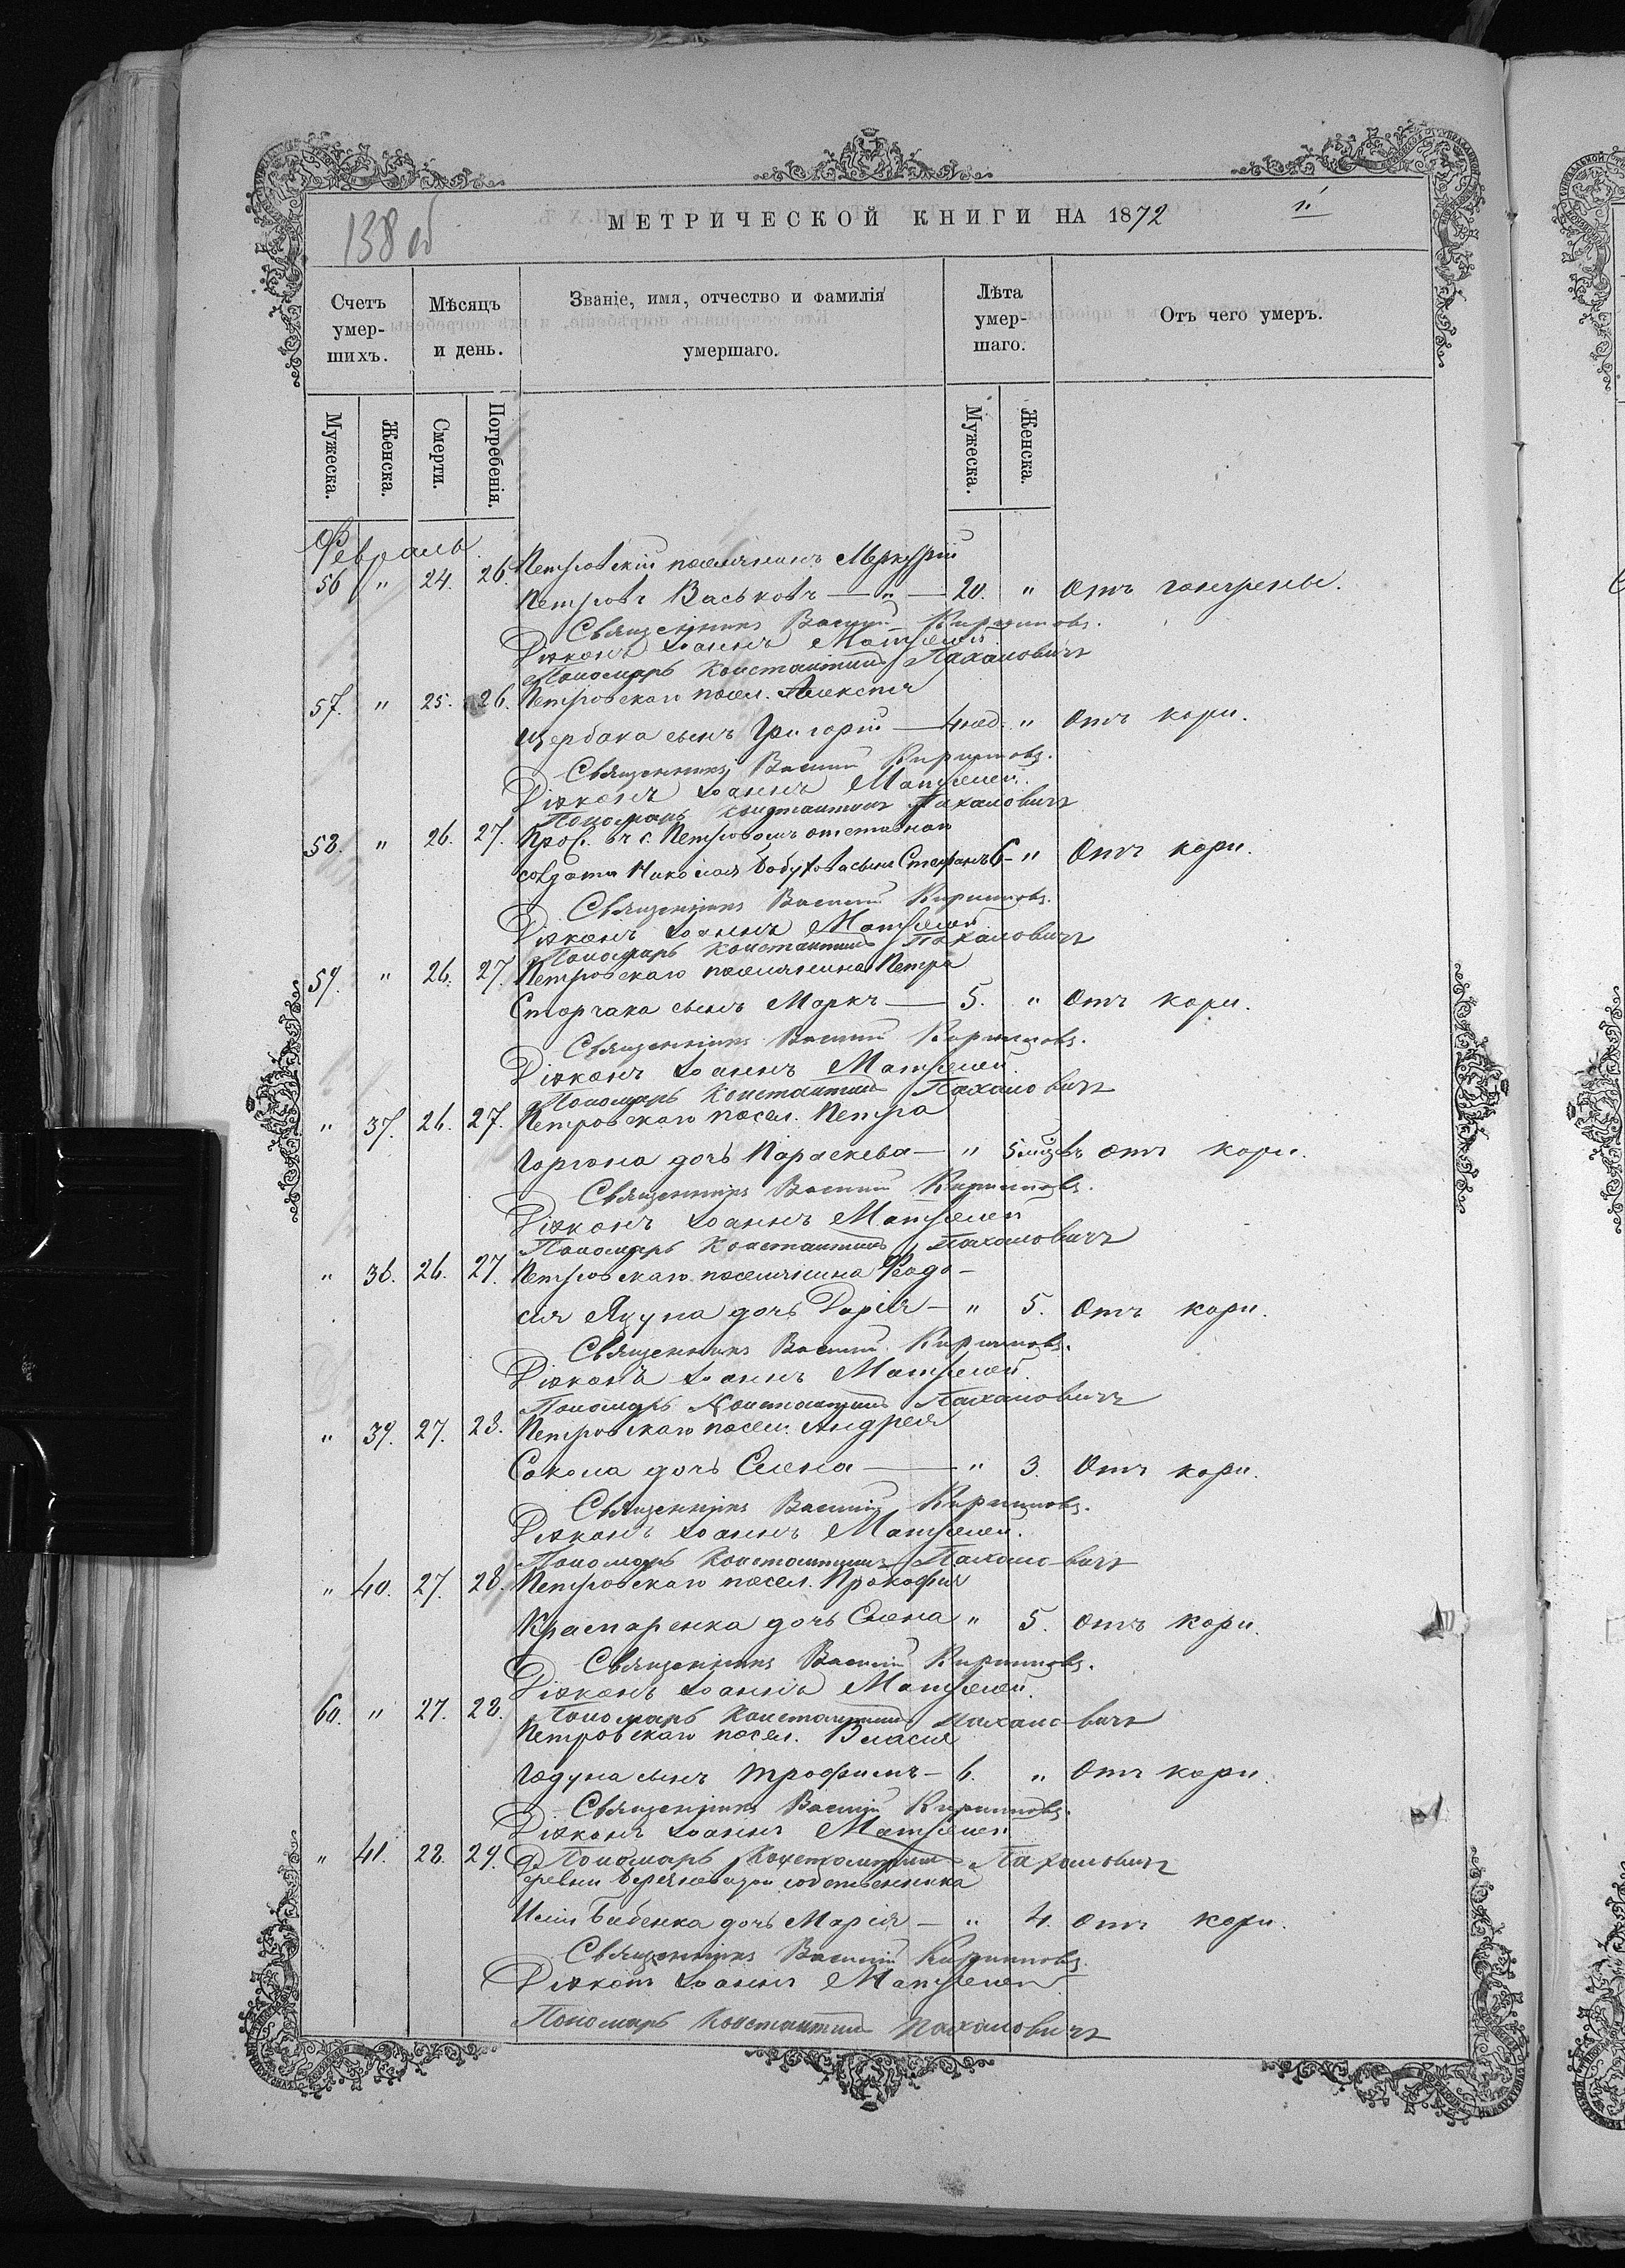 138 об
МЕТРИЧЕСКОЙ КНИГИ НА 1872
Счетъ умер-шихъ.
Мѣсяцъ и день.
Званіе, имя, отчество и фамилія умершаго.
Лѣта умер-шаго.
Отъ чего умеръ.
Мужеска.
Женска.
Смерти.
Погребенія.
Мужеска.
Женска.
Февраль.
56 " 24. 26. Петровскій поселянинъ Меркурій
Петровъ Васьковъ — " — 20. " Отъ гангрены.
Священникъ Василій
Діаконъ Іоаннъ
Пономарь Константинъ Пахаловичъ
57. " 25. 26. Петровскаго посел. Алексѣя
Щербака сынъ Григорій — 4 нед. " Отъ кори.
Священникъ Василій
Діаконъ Іоаннъ
Пономарь Константинъ Пахаловичъ
58. " 26. 27. Прож. въ с. Петровомъ отставнаго
солдата Николая сынъ Стефанъ 6 - " Отъ кори.
Священникъ Василій
Діаконъ Іоаннъ
Пономарь Константинъ Пахаловичъ
59. " 26. 27. Петровскаго поселянина Петра
Сторчака сынъ Маркъ — 5. " Отъ кори.
Священникъ Василій
Діаконъ Іоаннъ
Пономарь Константинъ Пахаловичъ
" 37. 26. 27. Петровскаго посел. Петра
дочь Параскева — " 5 отъ кори.
Священникъ Василій
Діаконъ Іоаннъ
Пономарь Константинъ Пахаловичъ
" 38. 26. 27. Петровскаго поселянина Феодо-
сія Яцуна дочь Дарія — " 5. Отъ кори.
Священникъ Василій
Діаконъ Іоаннъ
Пономарь Константинъ Пахаловичъ
" 39. 27. 28. Петровскаго посел. Андрея
Сокола дочь Елена — " 3. Отъ кори.
Священникъ Василій
Діаконъ Іоаннъ
Пономарь Константинъ Пахаловичъ
" 40. 27. 28. Петровскаго посел. Прокофія
дочь Елена " 5. отъ кори.
Священникъ Василій
Діаконъ Іоаннъ
Пономарь Константинъ Пахаловичъ
60. " 27. 28. Петровскаго посел. Власія
Годуна сынъ Трофимъ — 6. " Отъ кори.
Священникъ Василій
Діаконъ Іоаннъ
Пономарь Константинъ Пахаловичъ
" 41. 28. 29. Деревни собственника
Иліи Бабенка дочь Марія — " 4. отъ кори.
Священникъ Василій
Діаконъ Іоаннъ
Пономарь Константинъ Пахаловичъ